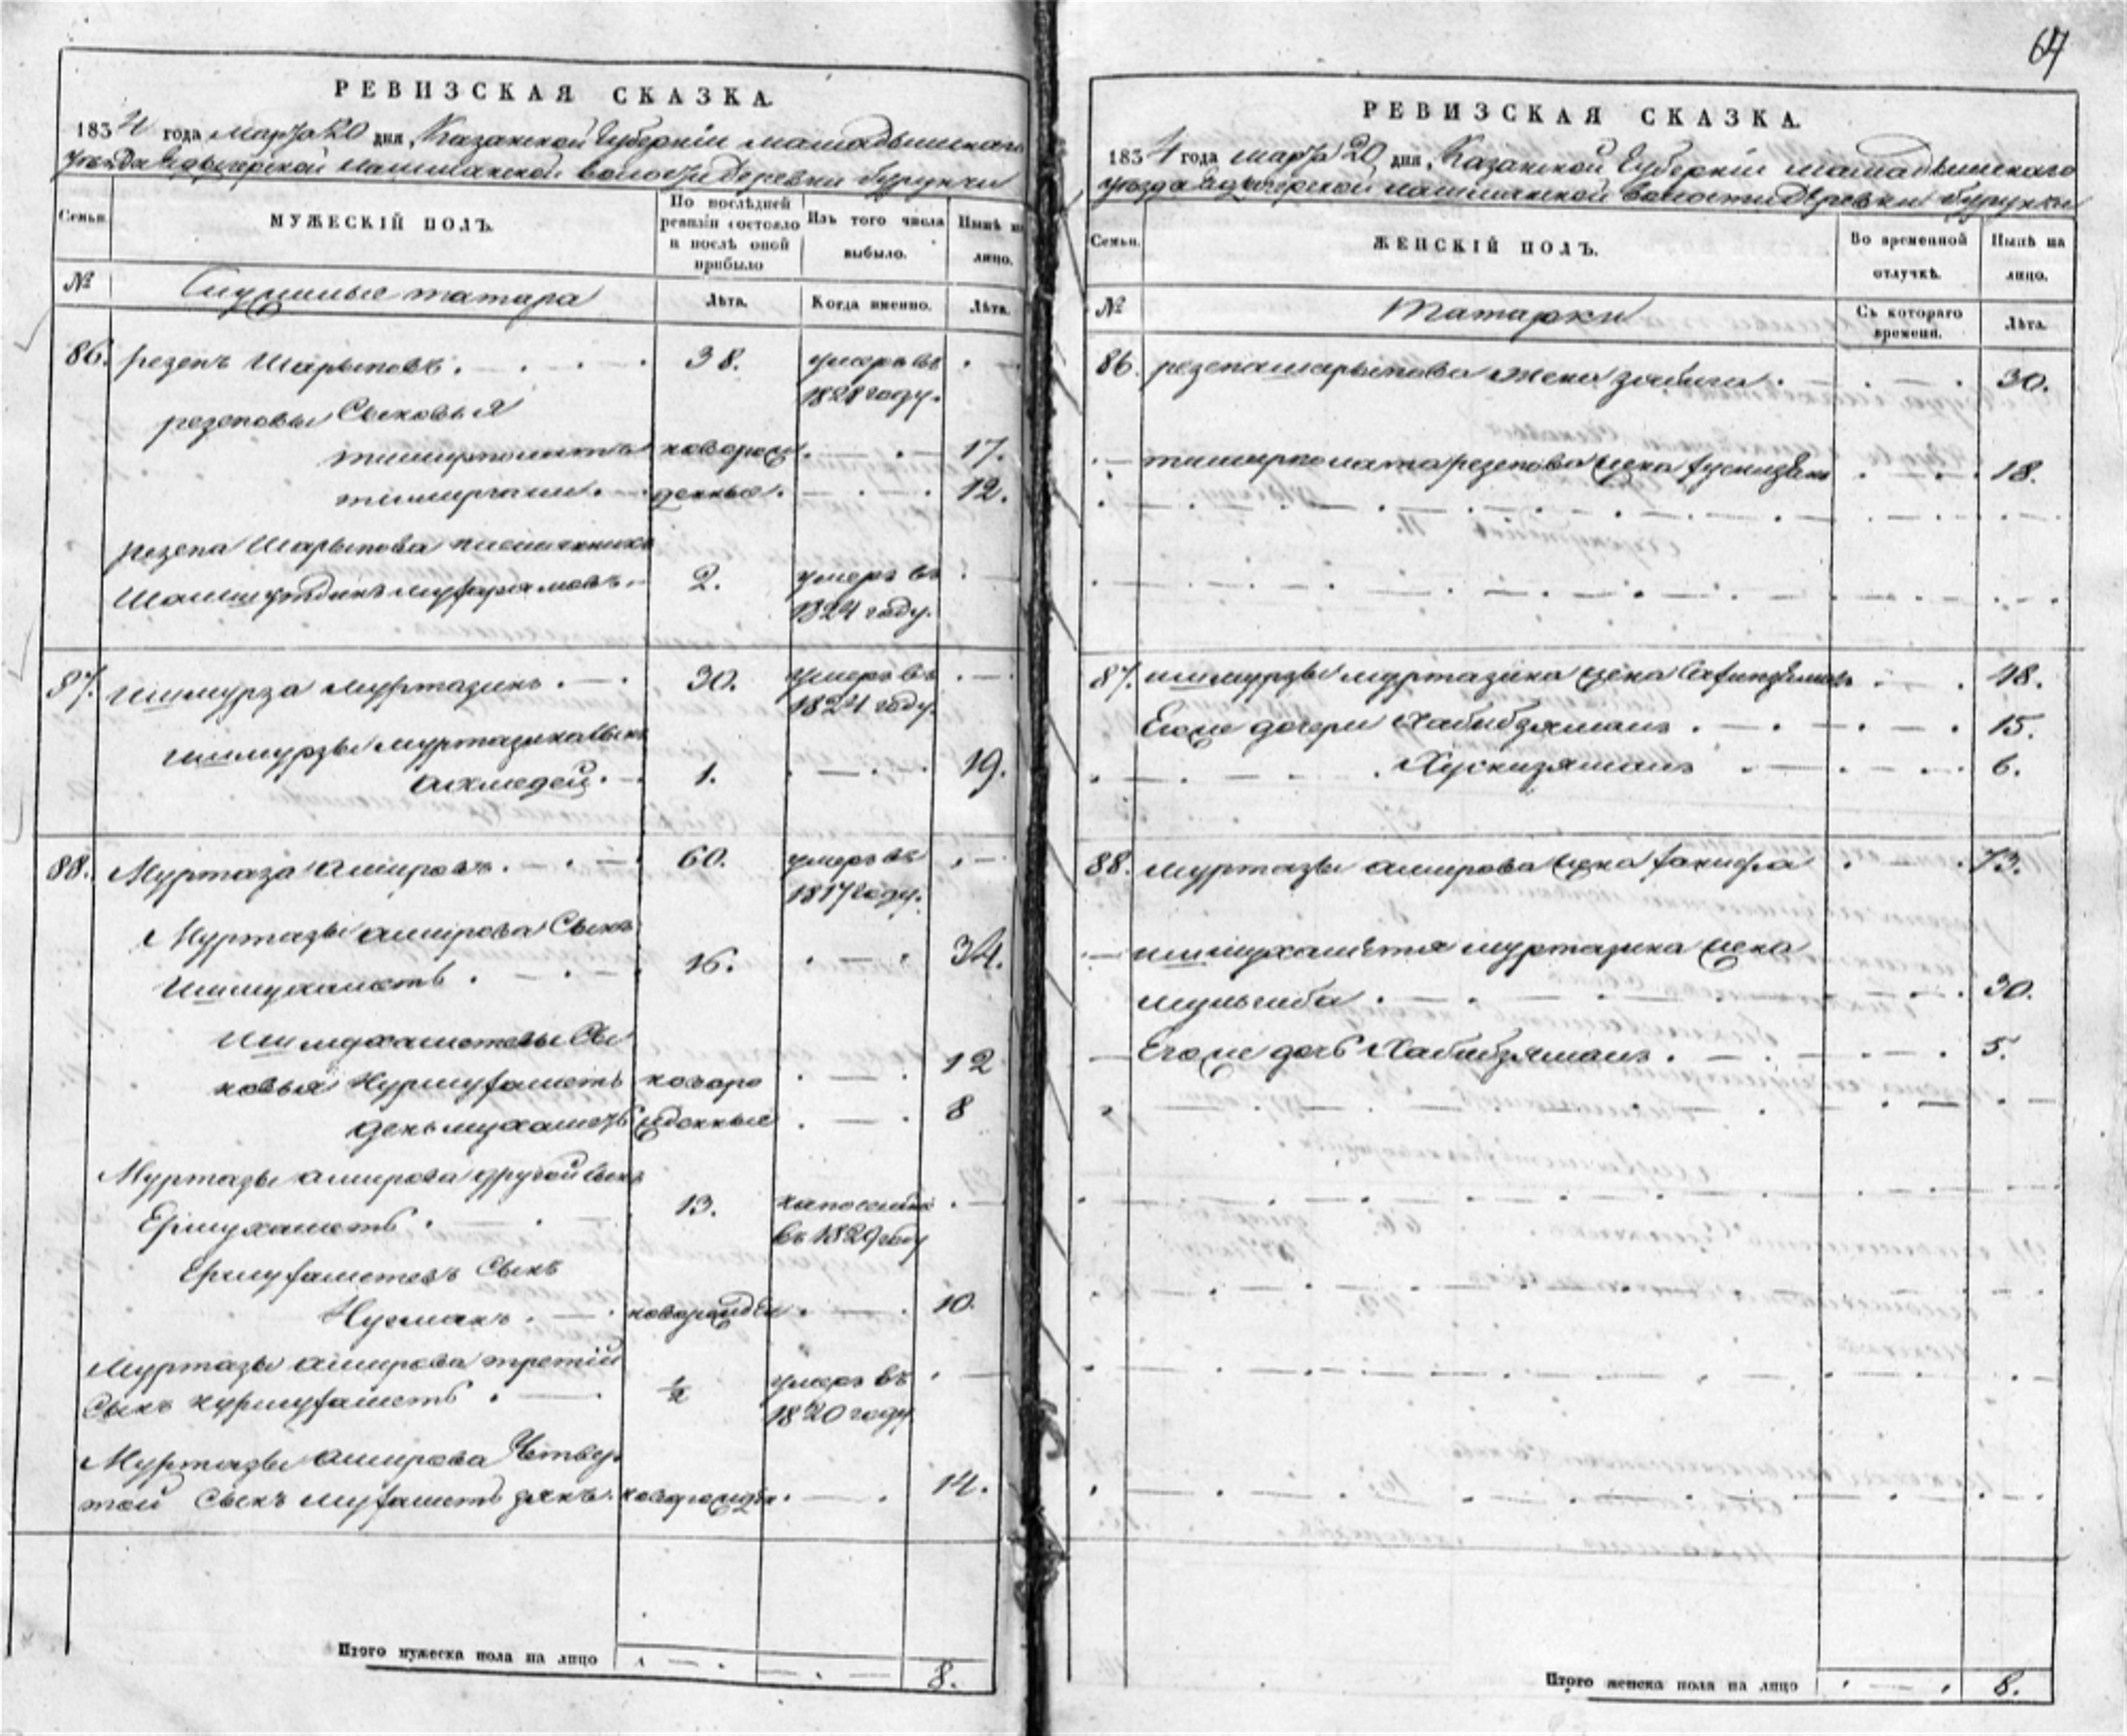 64
РЕВИЗСКАЯ СКАЗКА.
1834 года марта 20 дня, Казанской Губерніи мамадышскаго
уѣзда лашманской волости деревни
Семьи.
МУЖЕСКІЙ ПОЛЪ.
По послѣдней ревизіи состояло и послѣ оной прибыло
Изъ того числа выбыло.
Нынѣ на лицо.
№
Служилые татара
Лѣта.
Когда именно.
Лѣта.
86. резепъ Шарыповъ. 38. умеръ въ 1828 году.
резеповы Сыновья
новорож 17.
денные. 12.
резепа Шарыпова племянникъ
2. умеръ въ 1824 году.
87. ишмурза муртазинъ. 30. умеръ въ 1824 году.
ишмурзы муртазина сынъ
ахмедей. 1. 19.
88. Муртаза амировъ. 60. умеръ въ 1817 году.
Муртазы амирова Сынъ
ишмухаметъ. 16. 34.
ишмухаметовы Сы
новья Нурмухаметъ новоро 12
жденные 8
Муртазы амирова другой сынъ
Ермухаметъ. 13. въ 1829 году
Ермухаметевъ Сынъ
Нугманъ. новорожден 10.
Муртазы амирова третій
Сынъ нурмухаметъ. ½ умеръ въ 1820 году
Муртазы амирова Четвер
той Сынъ мухаметъ зянъ. новорожден. 14.
Итого мужеска пола на лицо 8.
РЕВИЗСКАЯ СКАЗКА.
1834 года марта 20 дня, Казанской Губерніи мамадышскаго
уѣзда лашманской волости деревни
Семьи.
ЖЕНСКІЙ ПОЛЪ.
Во временной отлучкѣ.
Нынѣ на лицо.
№
Татарки
Съ котораго времени.
Лѣта.
86. резепа шарыпова жена 30.
резепова жена 18.
87. ишмурзы муртазина жена 48.
Ево же дочери Хабибзямалъ. 15.
Хуснизямалъ 6.
88. муртазы амирова жена 73.
ишмухаметя муртазина жена
30.
Ево же дочь Хабибзямалъ. 5.
Итого женска пола на лицо 8.